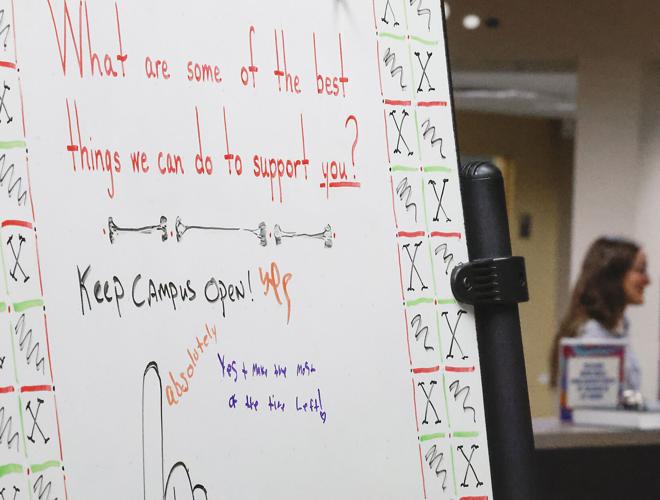 What are some of the best
things we can do to support you?
Keep Campus Open! yes
absolutely
Yes & Make the most
of the time Left!